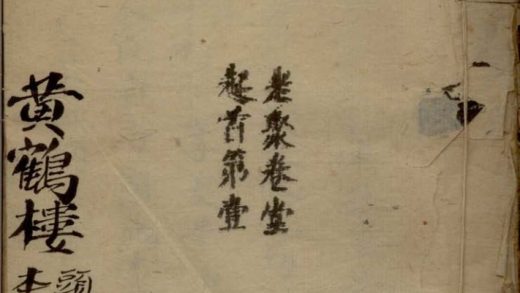 老聚卷堂
起首第壹
黄鶴樓
頭本